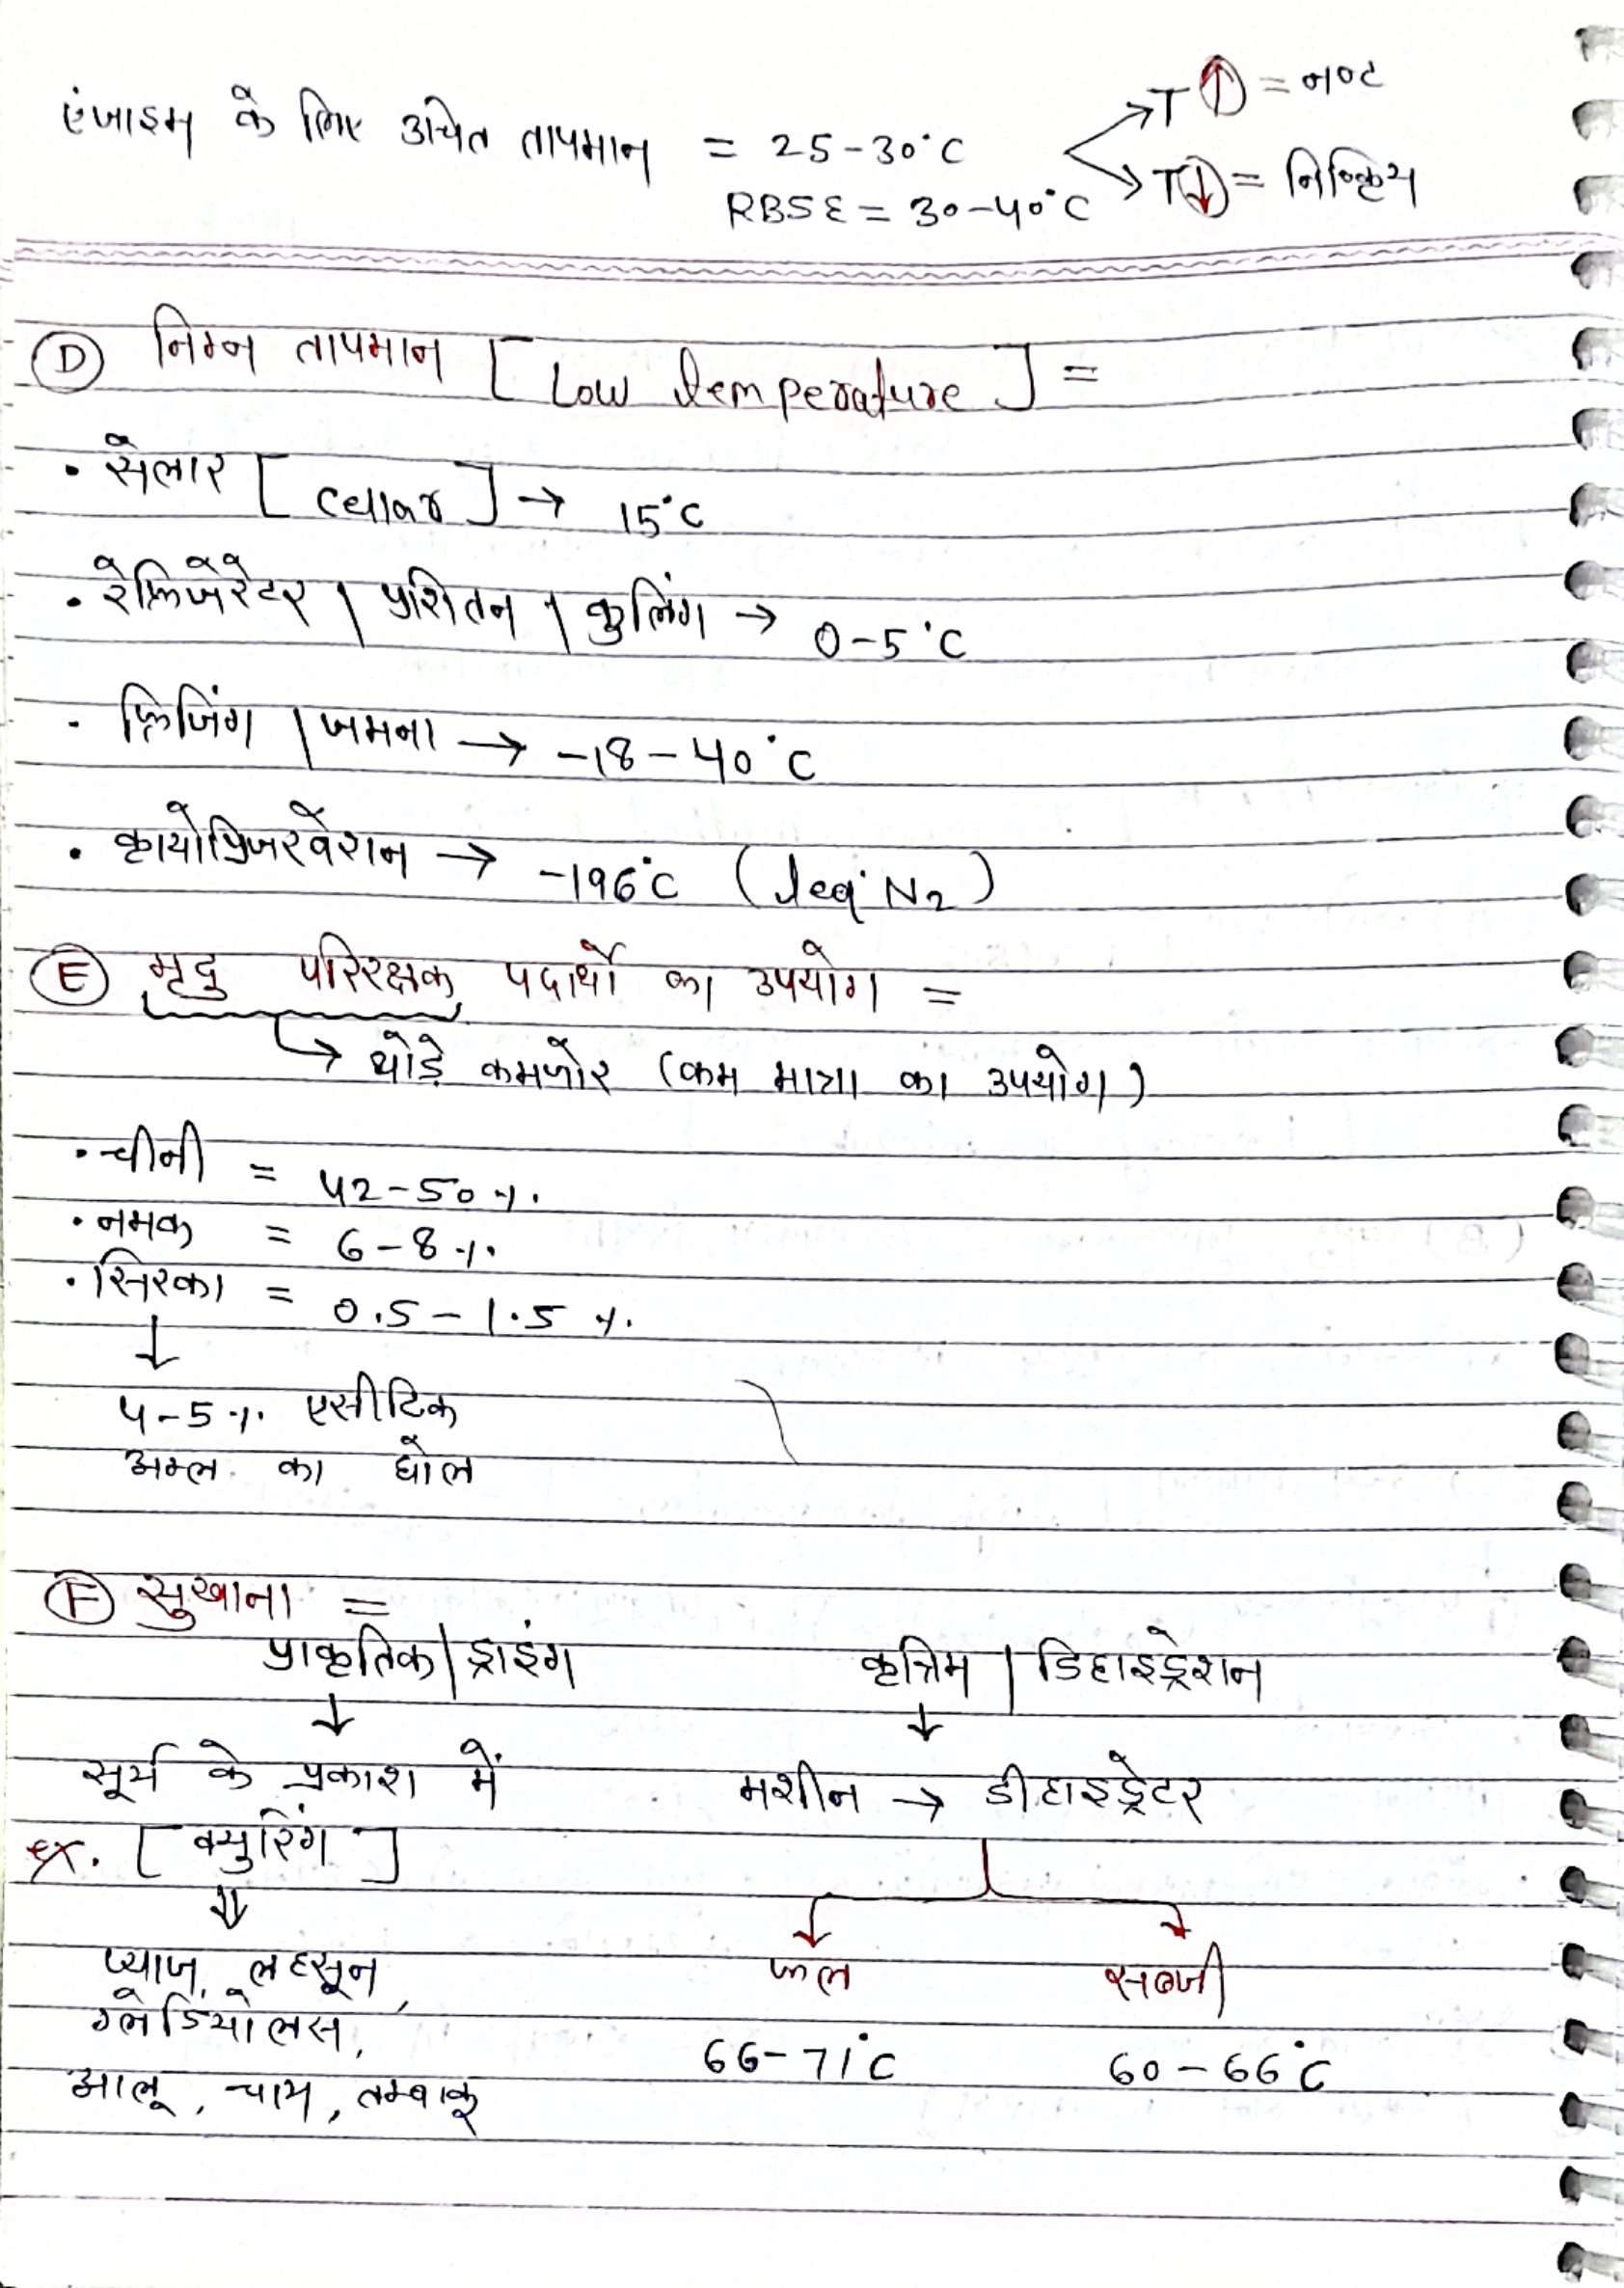 एंजाइम के लिए उचित तापमान = 25-30°C
T↑ = नष्ट
T↓ = निष्क्रिय
RBSE = 30-40°C
(D) निम्न तापमान [Low temperature] =
• सेलार [Cellar] → 15°C
• रेफ्रिजेरेटर | प्रशितन | कुलिंग → 0-5°C
- फ्रिजिंग | जमना → -18-40°C
• क्रायोप्रिजरवेशन → -196°C (leq. N2)
(E) मृदु परिरक्षक पदार्थो का उपयोग =
→ थोड़े कमजोर (कम मात्रा का उपयोग)
• चीनी = 42-50%
• नमक = 6-8%
• सिरका = 0.5-1.5%
↓
4-5% एसीटिक
अम्ल का घोल
(F) सुखाना =
प्राकृतिक | ड्राइंग कृत्रिम | डिहाइड्रेशन
↓ ↓
सूर्य के प्रकाश में मशीन → डीहाइड्रेटर
ex. [क्युरिंग]
प्याज, लहसून, फल सब्जी
ग्लेडियोलस,
66-71°C 60-66°C
आलू, चाय, तम्बाकू